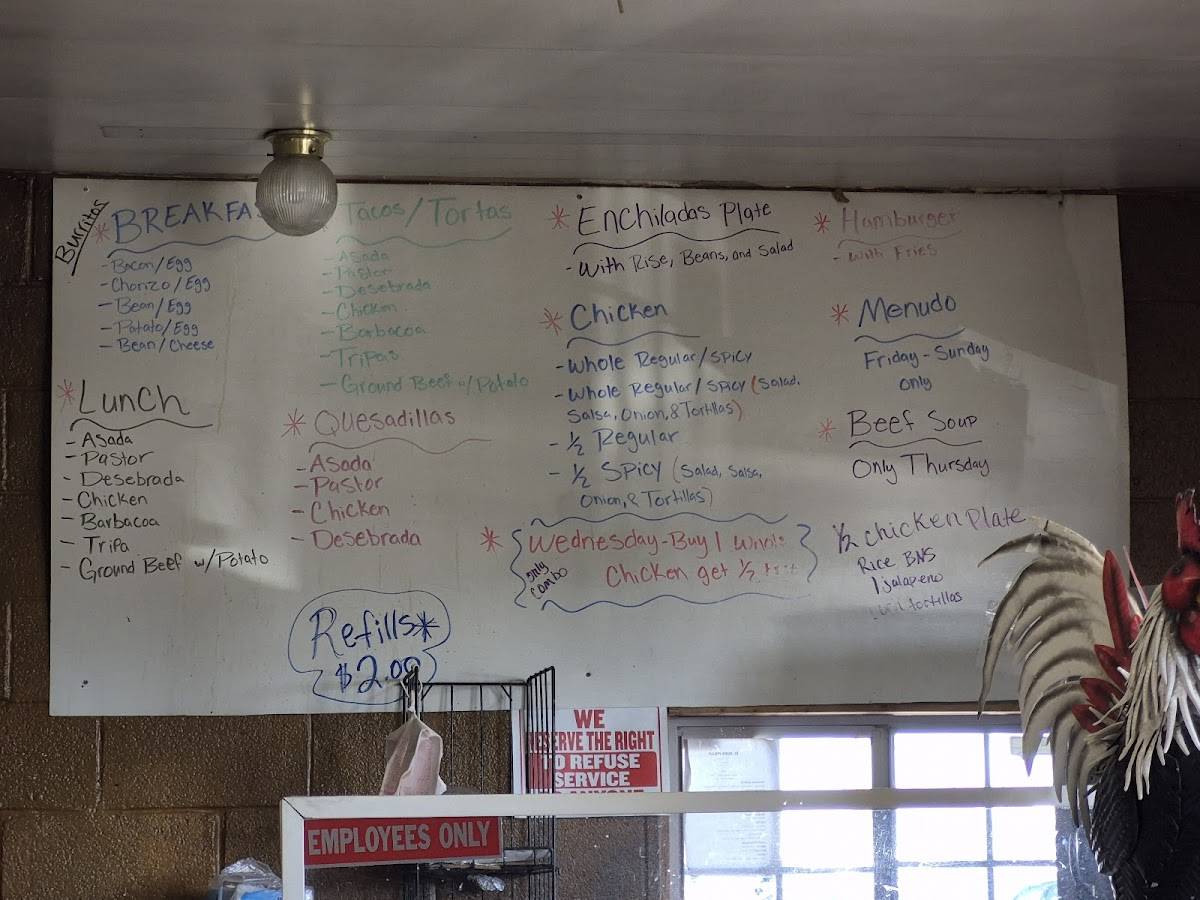 Burritos
* BREAKFA
- Bacon/Egg
- Chorizo/Egg
- Bean/Egg
- Potato/Egg
- Bean/Cheese
* Lunch
- Asada
- Pastor
- Desebrada
- Chicken
- Barbacoa
- Tripa
- Ground Beef w/Potato
Tacos/Tortas
- Asada
- Pastor
- Desebrada
- Chicken
- Barbacoa
- Tripas
- Ground Beef w/Potato
* Quesadillas
- Asada
- Pastor
- Chicken
- Desebrada
Refills*
$2.00
* Enchiladas Plate
- With Rise, Beans, and Salad
* Chicken
- Whole Regular/Spicy
- Whole Regular/Spicy (Salad,
Salsa, Onion, & Tortillas)
- 1/2 Regular
- 1/2 Spicy (Salad, Salsa,
Onion, & Tortillas)
* Wednesday-Buy 1 Whole
Chicken get 1/2 free
only
combo
* Hamburger
- With Fries
* Menudo
Friday-Sunday
only
* Beef Soup
Only Thursday
1/2 chicken Plate
Rice BNS
1 jalapeno
tortillas
WE
RESERVE THE RIGHT
TO REFUSE
SERVICE
EMPLOYEES ONLY